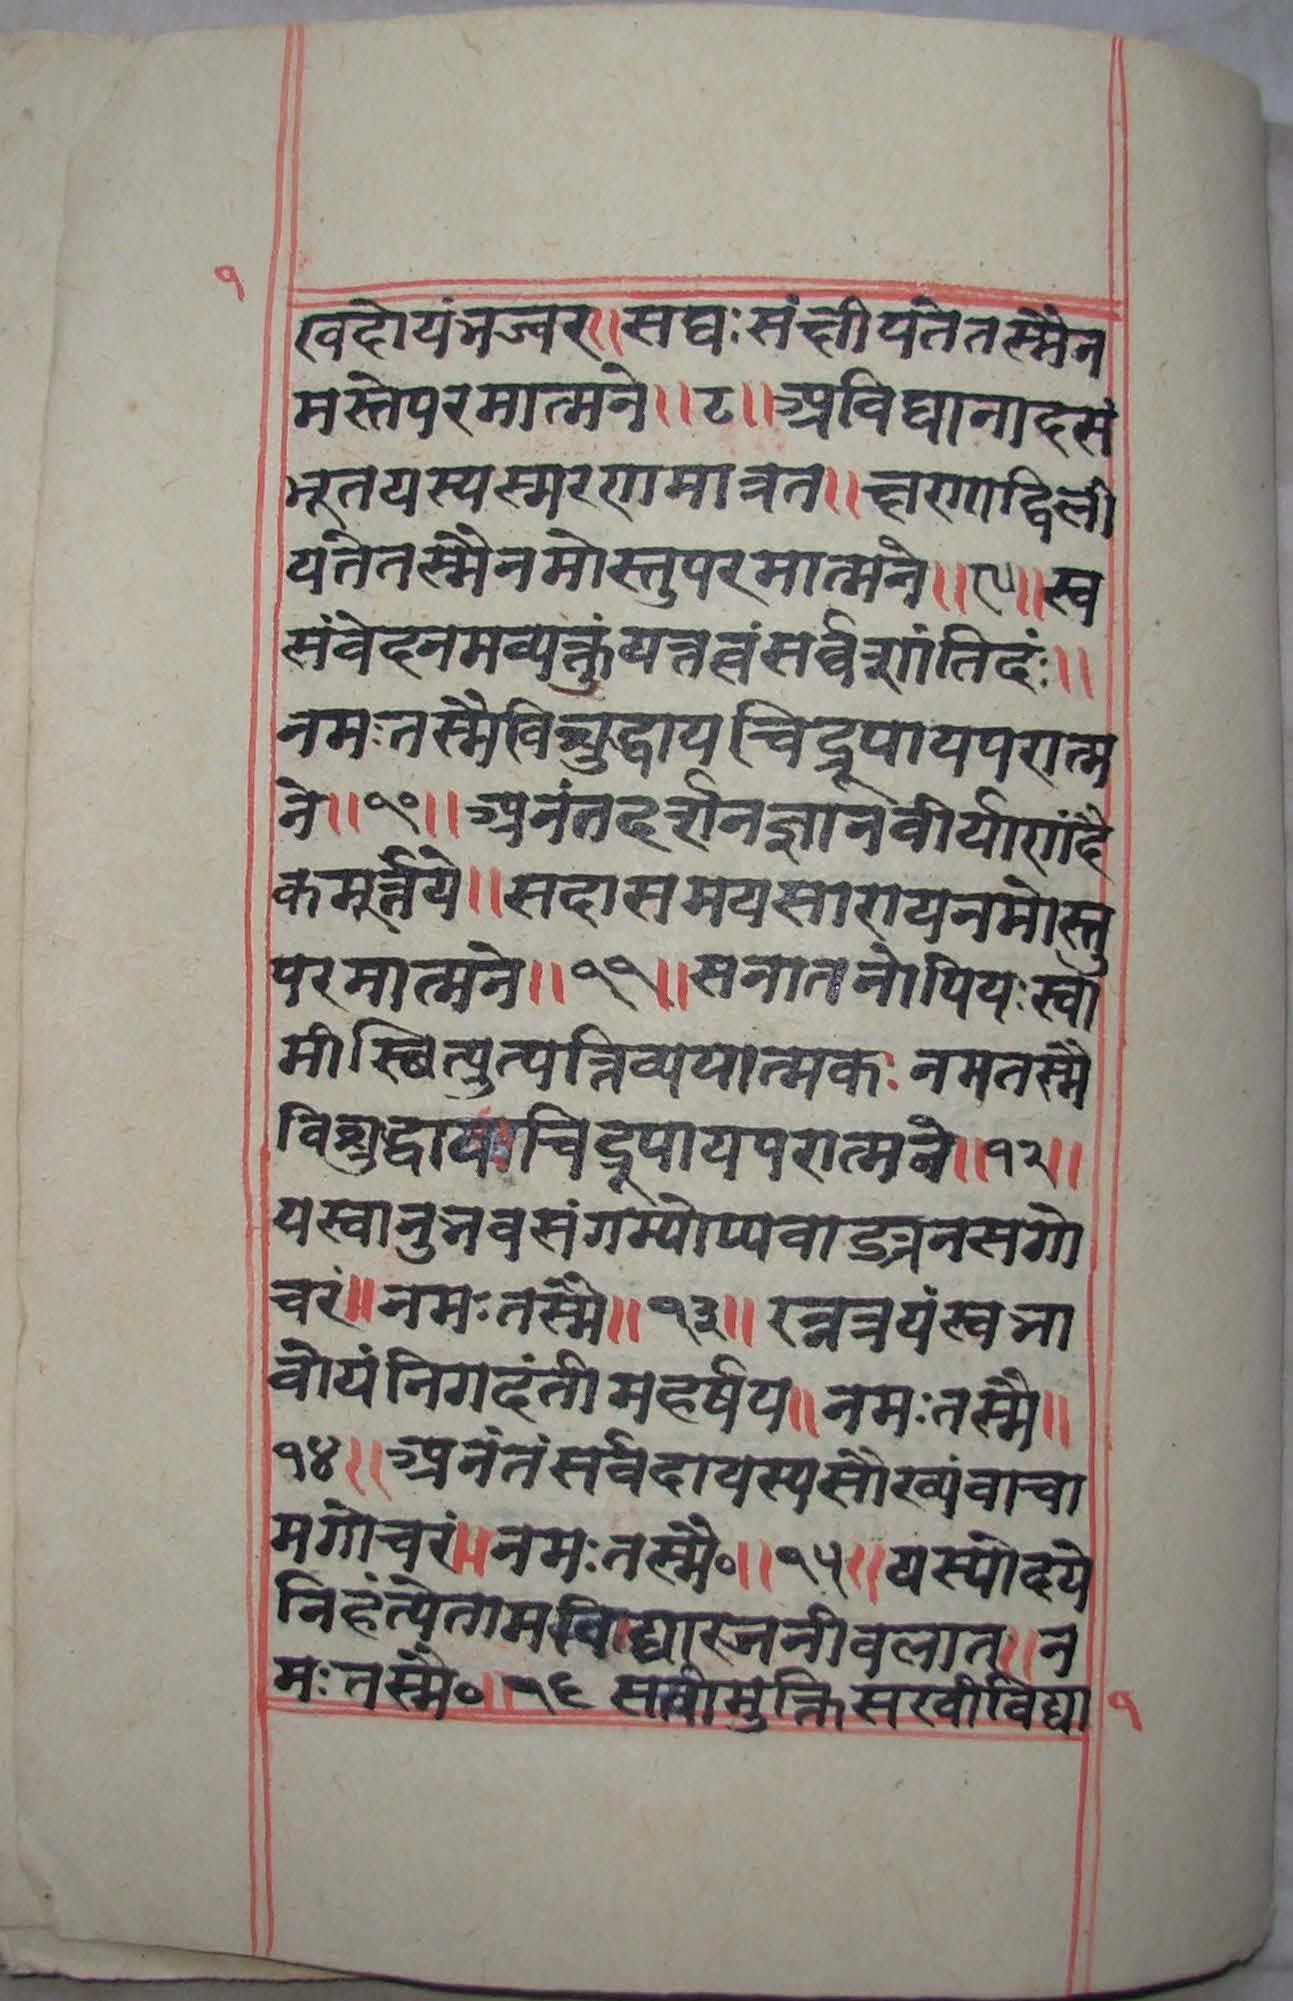 १
खदोयंभज्वर॥सद्यःसंक्षीयतेतस्मैन
मस्तेपरमात्मने॥८॥अविद्यानादसं
भूतयस्यस्मरणमात्रत॥क्षणाद्विली
यतेतस्मैनमोस्तुपरमात्मने॥९॥स्व
संवेदनमव्यक्तंयत्तत्वंसर्वशांतिदंः॥
नमःतस्मैविशुद्धायचिद्रूपायपरात्म
ने॥१०॥अनंतदर्शनज्ञानवीर्याणंदै
कमूर्त्तये॥सदासमयसारायनमोस्तु
परमात्मने॥११॥सनातनोपियःस्वा
मीस्थित्युत्पत्तिव्ययात्मकः नमतस्मै
विशुद्धायचिद्रूपायपरात्मने॥१२॥
यस्वानुभवसंगम्योप्यवाङ्मनसगो
चरं॥नमःतस्मै॥१३॥रत्नत्रयंस्वभा
वोयंनिगदंतीमहर्षय॥नमःतस्मै॥
१४॥अनंतंसर्वदायस्यसौख्यंवाचा
मगोचरं॥नमःतस्मै०॥१५॥यस्योदये
निहंत्येतामविद्यारजनीवलात्॥न
मःतस्मै०॥१६ सखीमुक्तिसखीविद्या
१